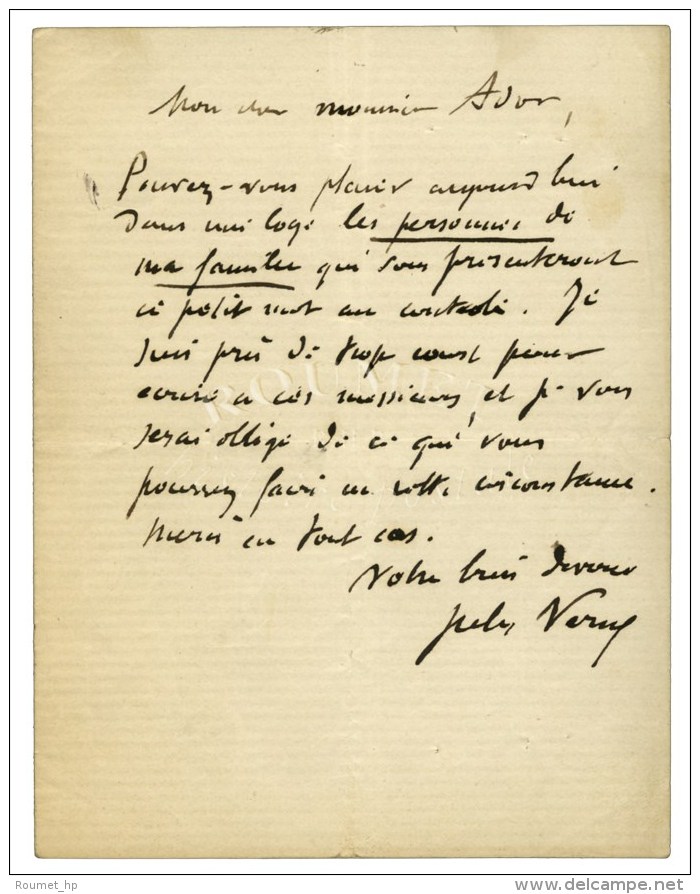 Mon cher monsieur Ador,
Pouvez-vous placer aujourd'hui
dans une loge les personnes de
ma famille qui vous présenteront
ce petit mot au contrôle. Je
suis pris de trop court pour
écrire à ces messieurs, et je vous
serai obligé de ce que vous
pourrez faire en cette circonstance.
Merci en tout cas.
Votre bien dévoué
Jules Verne
ROUMET
Roumet_hp
www.delcampe.net